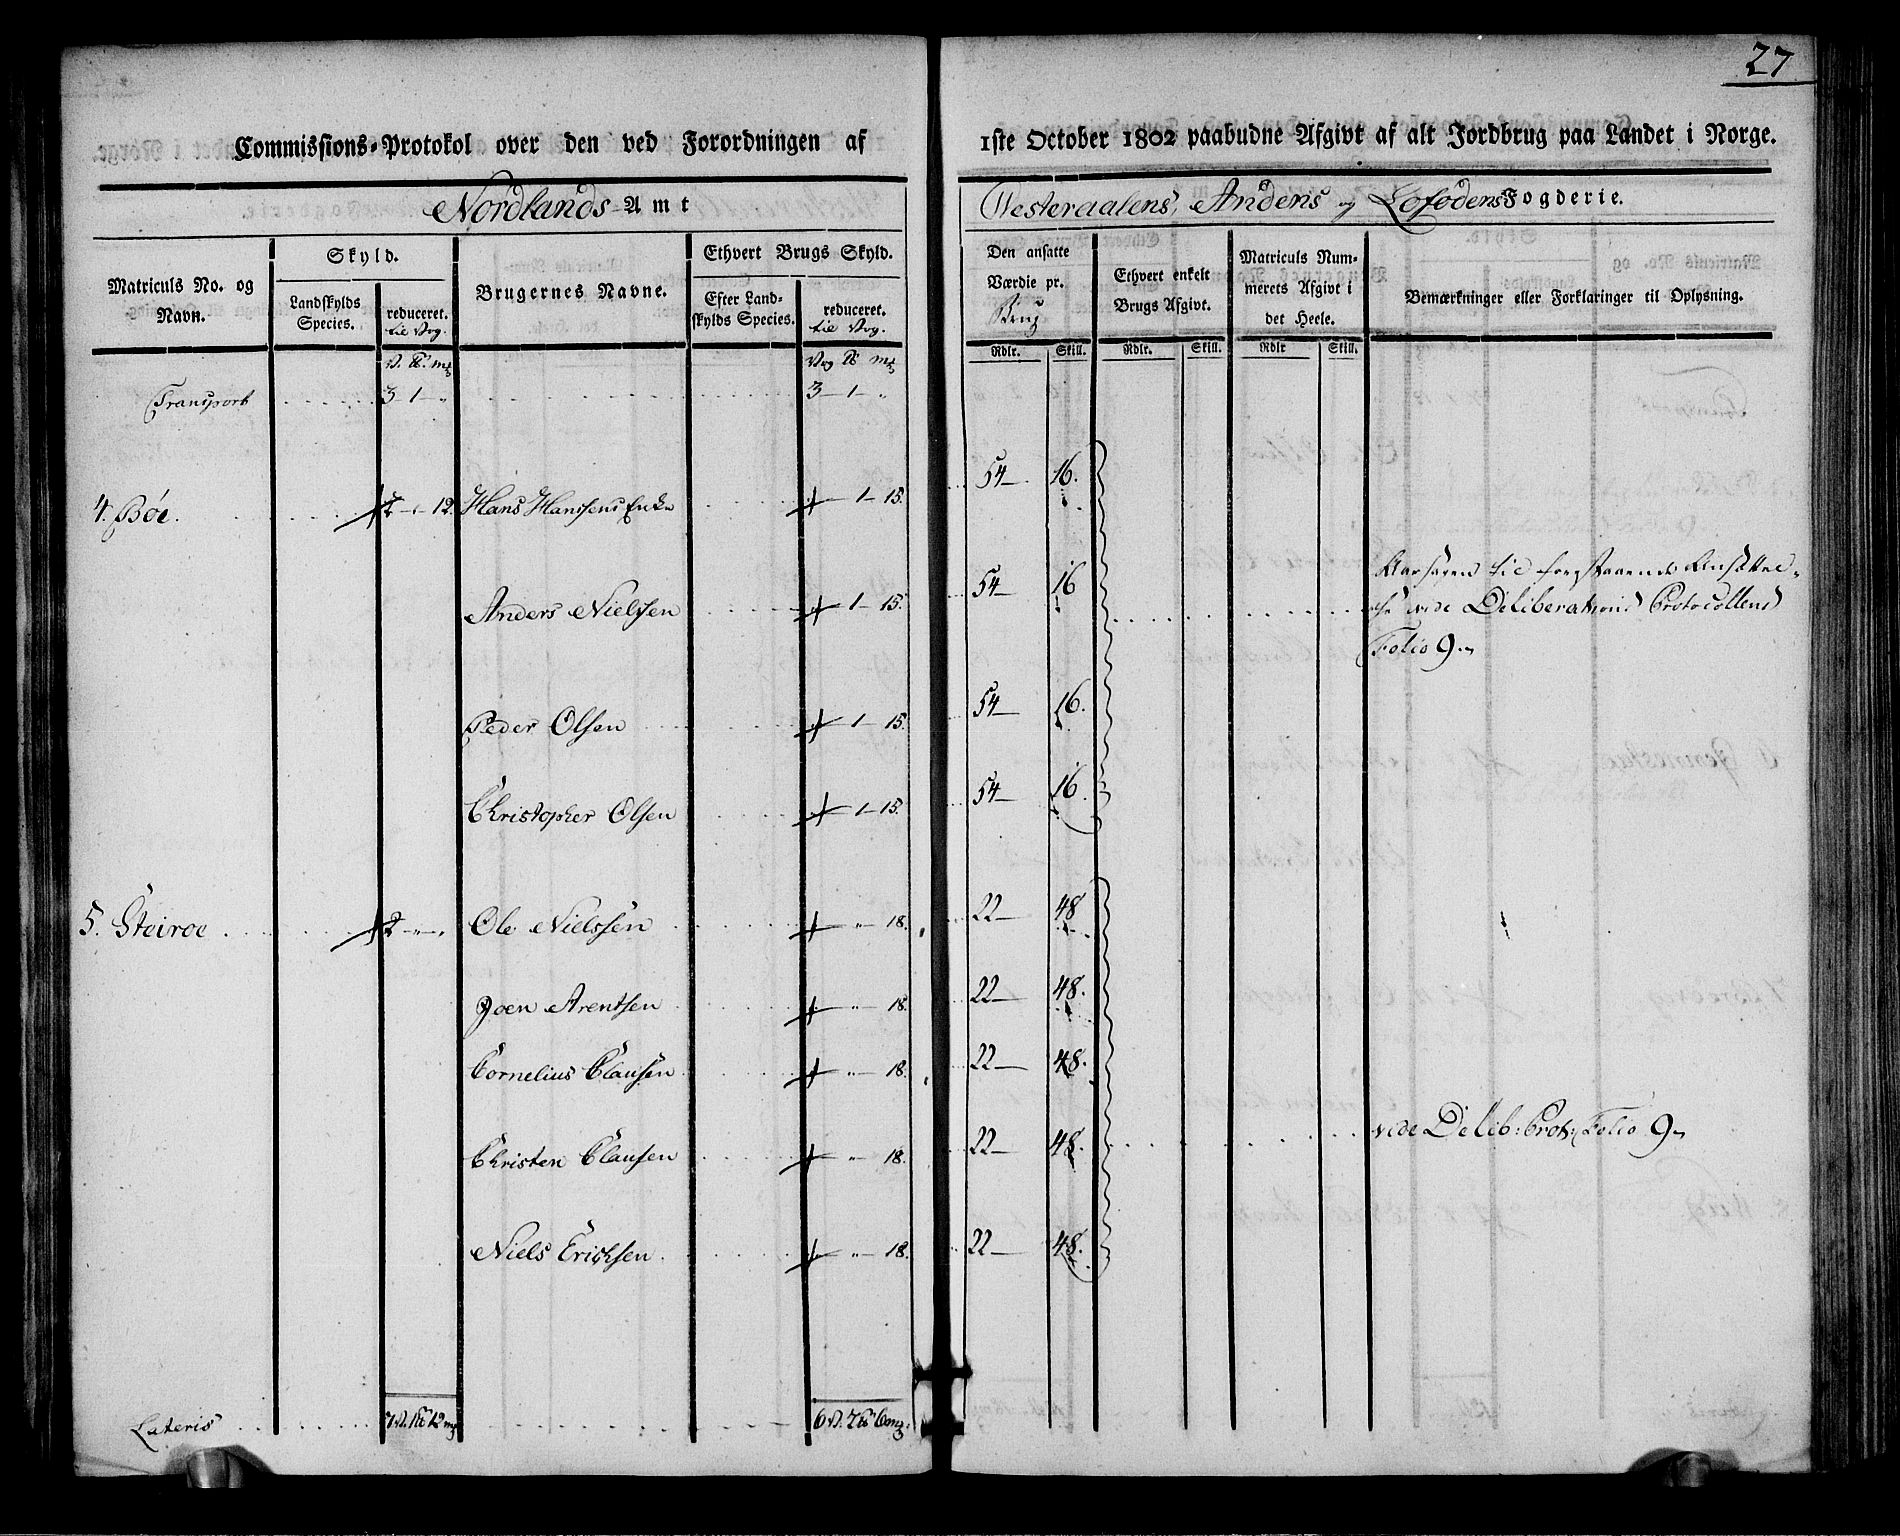 27
Commissions-Protokol over den ved Forordningen af 1ste October 1802 paabudne Afgivt af alt Jordbrug paa Landet i Norge.
Nordlands-Amt Westeraalens, Andens og Lofodens Fogderie.
Matriculs No. og Navn. Skyld. Landskylds Species. reduceret. til Vog. Brugernes Navne. Ethvert Brugs Skyld. Efter Landskylds Species. reduceret. til Vog. Den ansatte Værdie pr. Brug Ethvert enkelt Brugs Afgivt. Matriculs Nummerets Afgivt i det Heele. Bemærkninger eller Forklaringer til Oplysning.
Rdlr. Skill. Rdlr. Skill. Rdlr Skill.
Transport 3 - 1 - " 3 - 1 - "
4. Bøe. 12. Hans Hanssens Enke 1 - 15. 54 - 16.
Anders Nielssen 1 - 15. 54 - 16
Aarsagen til foregstaaende Ansættel-
se vide Deliberations Protocollens
Folio 9
Peder Olsen 1 - 15. 54 - 16.
Christopher Olsen 1 - 15. 54 - 16.
5. Steiroe 2 - " - " Ole Nielssen " - 18. 22 - 48
Joen Arentsen " - 18. 22 - 48.
Cornelius Clausen " - 18. 22 - 48.
Christen Clausen " - 18. 22 - 48. vide Delib: Prot: Folio 9
Niels Erichsen " - 18. 22 - 48.
Lateris